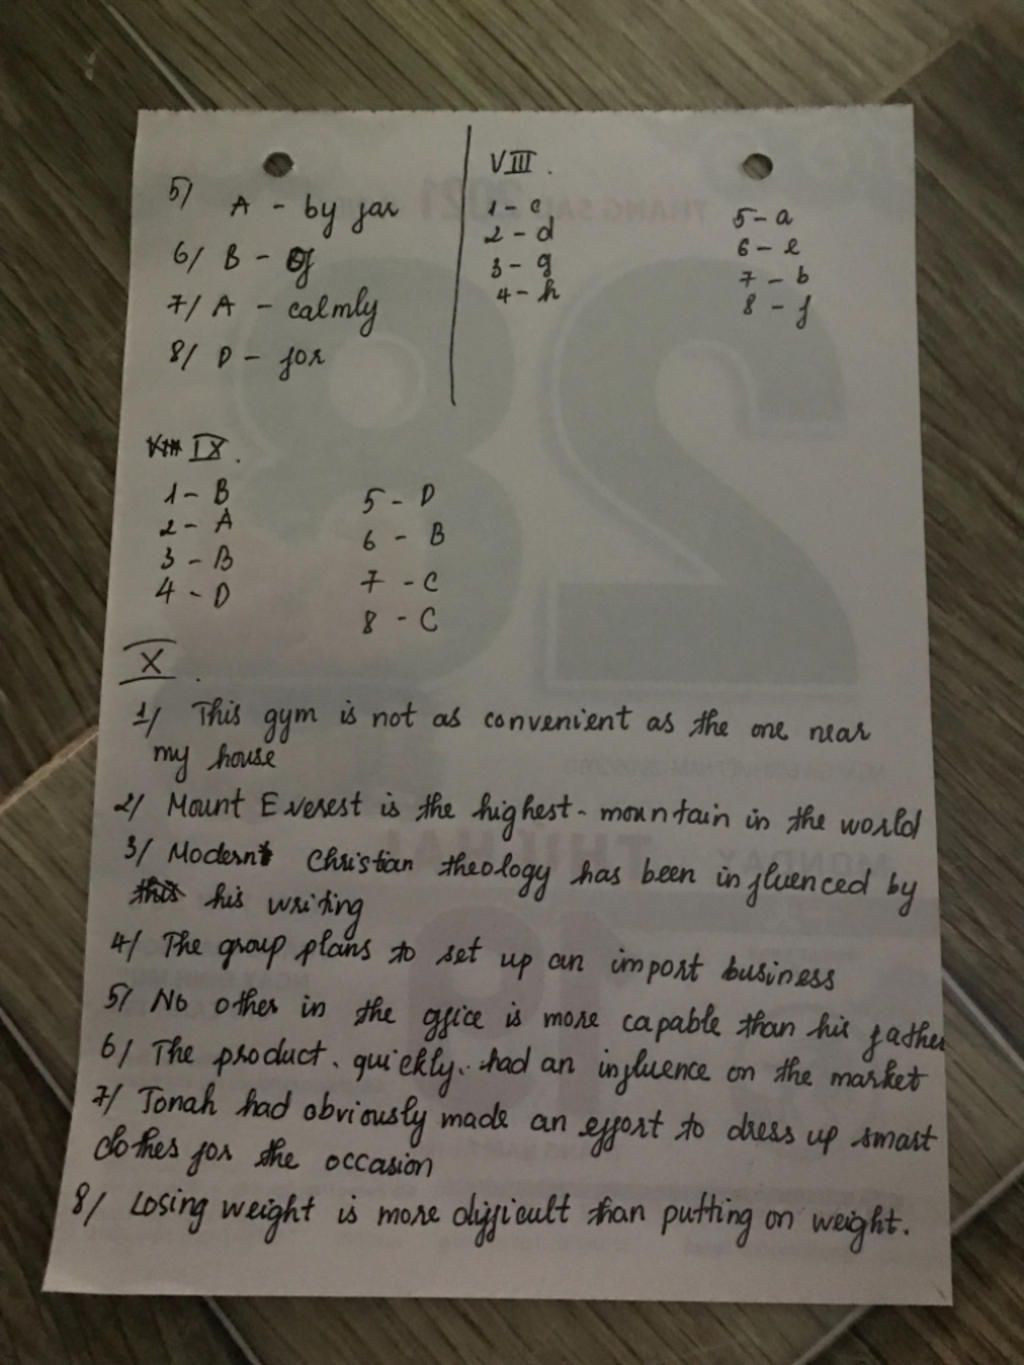 5/ A - by far
6/ B - of
7/ A - calmly
8/ D - for
VIII.
1 - c
2 - d
3 - g
4 - h
5 - a
6 - e
7 - b
8 - f
IX.
1 - B
2 - A
3 - B
4 - D
5 - D
6 - B
7 - C
8 - C
X.
1/ This gym is not as convenient as the one near
my house
2/ Mount Everest is the highest - mountain in the world
3/ Modern Christian theology has been influenced by
his writing
4/ The group plans to set up an import business
5/ No other in the office is more capable than his father
6/ The product quickly had an influence on the market
7/ Jonah had obviously made an effort to dress up smart
clothes for the occasion
8/ Losing weight is more difficult than putting on weight.
28
THÁNG SÁU 2021
MONDAY
THỨ HAI
19